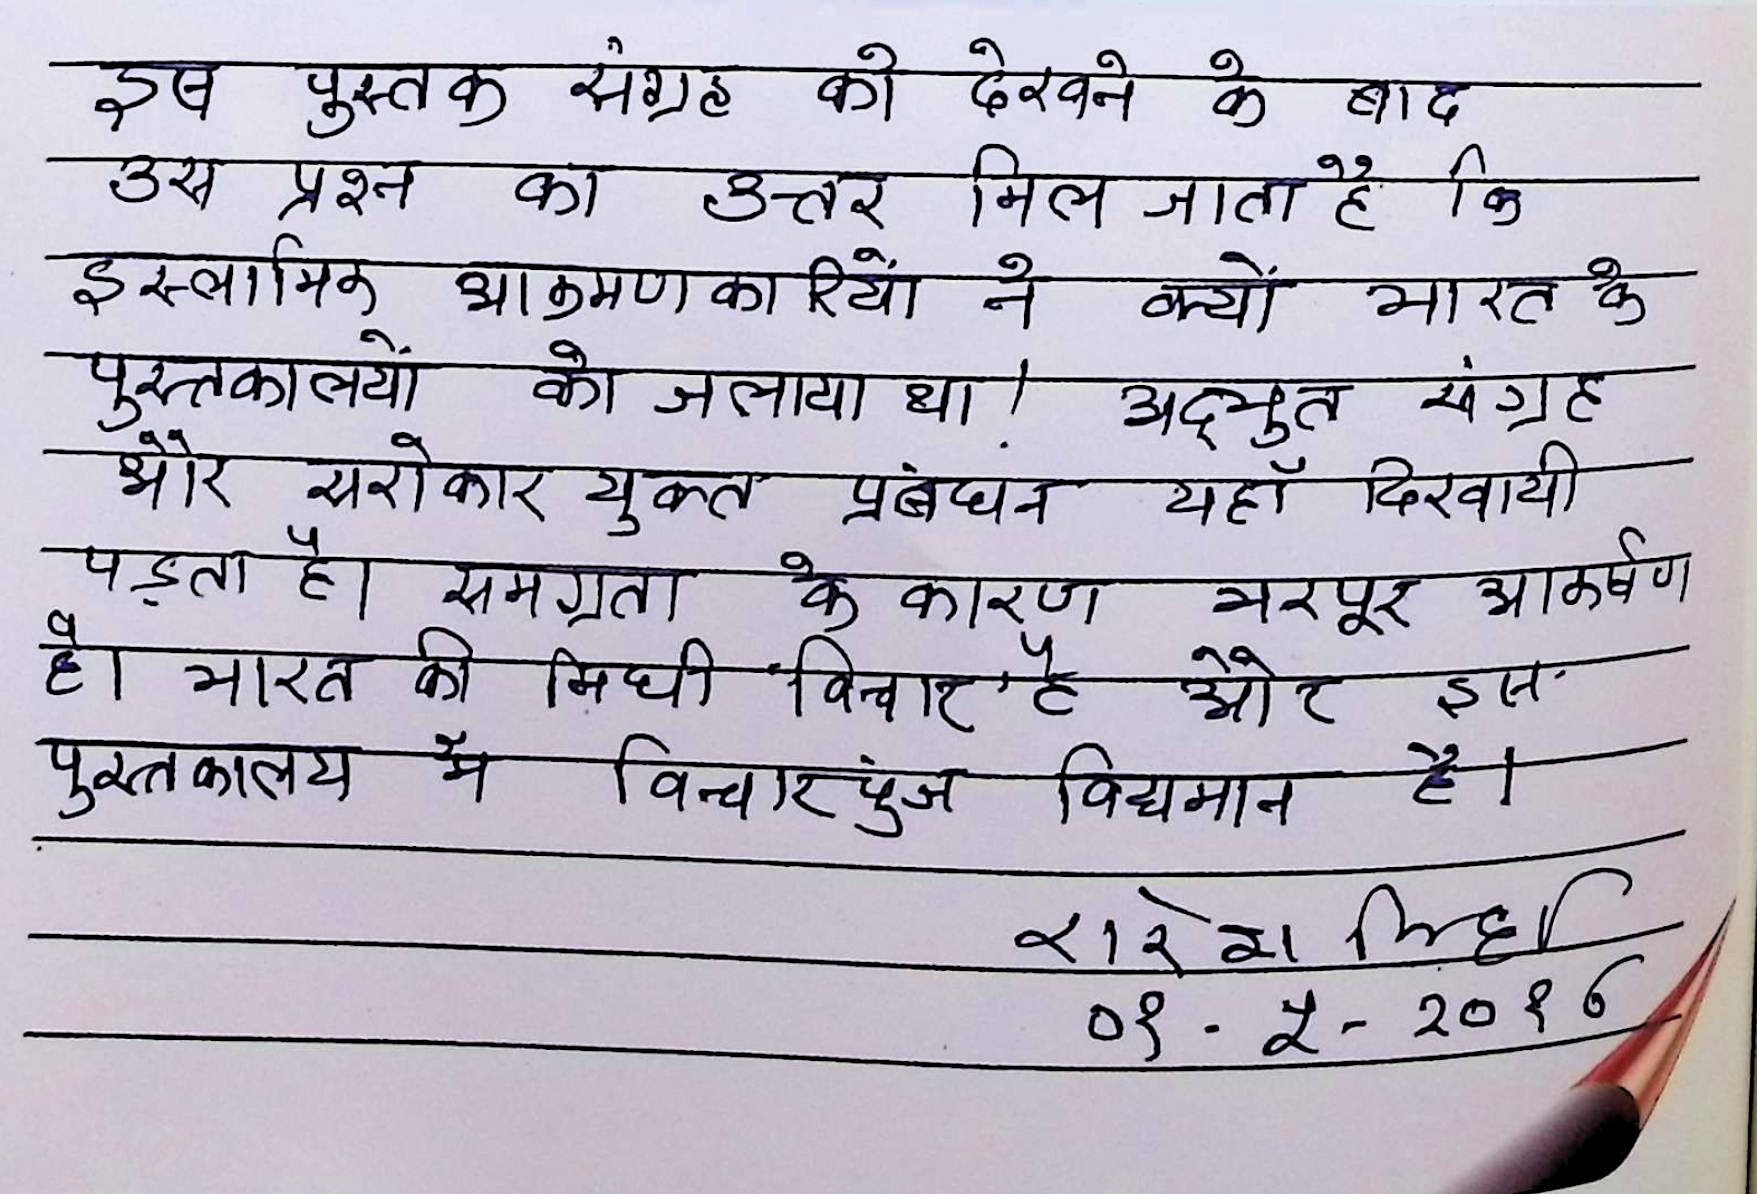 इस पुस्तक संग्रह को देखने के बाद
उस प्रश्न का उत्तर मिल जाता है कि
इस्लामिक आक्रमणकारियों ने क्यों भारत के
पुस्तकालयों को जलाया था! अद्भुत संग्रह
और सरोकार युक्त प्रबंधन यहाँ दिखायी
पड़ता है। समग्रता के कारण भरपूर आकर्षण
है। भारत की निधी 'विचार' है और इस
पुस्तकालय में विचारपुंज विद्यमान है।
सिन्हा